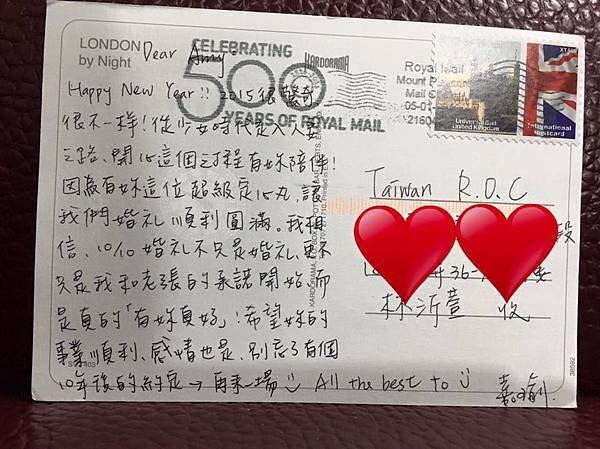 LONDON
by Night
Dear Amy
CELEBRATING
500
YEARS OF ROYAL MAIL
KARDORAMA
Royal Mail
Mount Pleasant
Mail Centre
05-01-
21604
Universal Mail
United Kingdom
International
Postcard
Happy New Year!! 2015很驚奇
很不一樣!從少女時代走入人妻
之路、開心這個過程有妳陪伴!
因為有妳這位超級定心丸,讓
我們婚禮順利圓滿。我相
信、10/10 婚禮不只是婚禮、更不
只是我和老張的承諾開始、而
是真的「有妳真好」!希望妳的
事業順利、感情也是、別忘了有個
10年後的約定→再來一場 All the best to U
Taiwan R.O.C
段
36-
林沂萱 收
38592